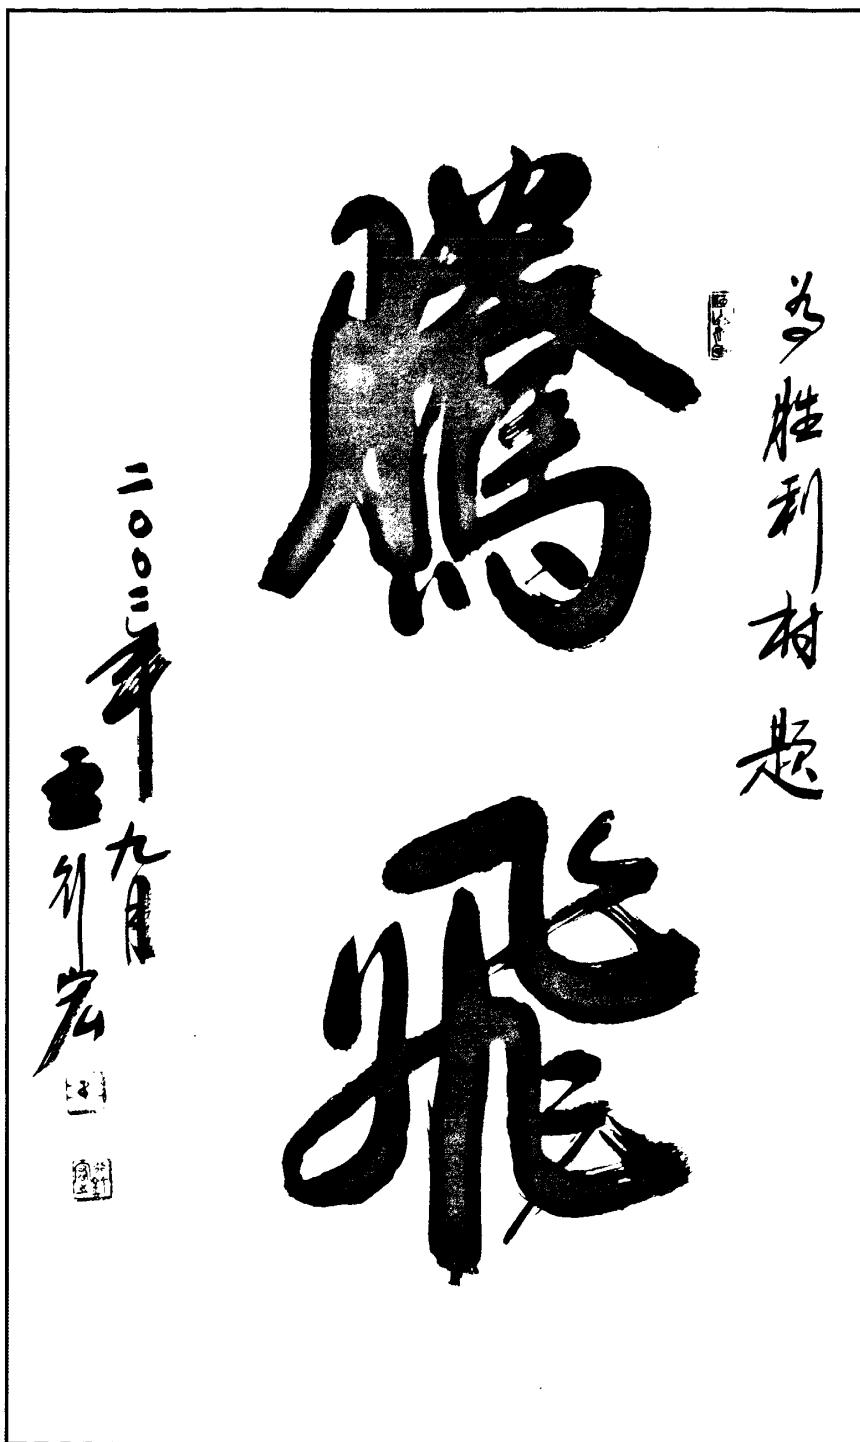 为胜利村题
騰飛
二〇〇二年九月
宏